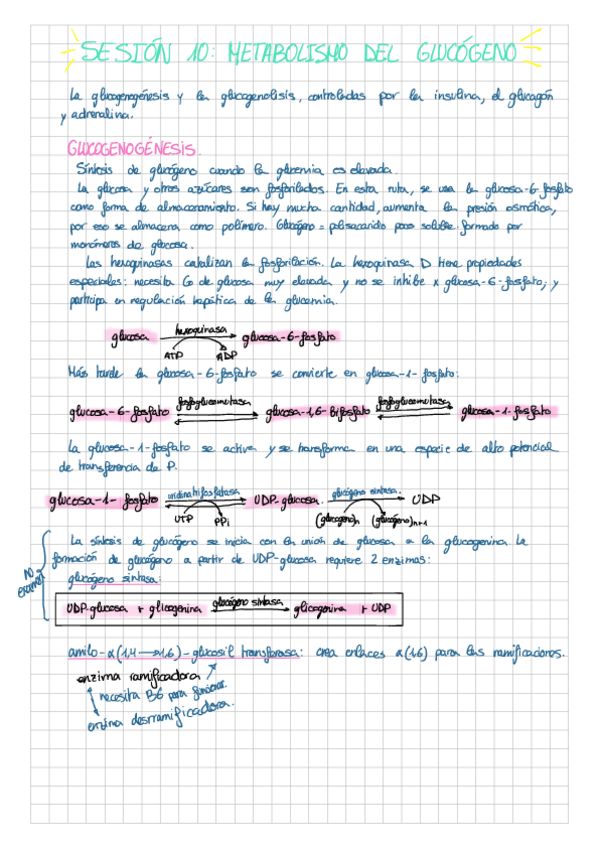 SESIÓN 10: METABOLISMO DEL GLUCÓGENO
La glucogenogénesis y la glucogenolisis, controladas por la insulina, el glucagón
y adrenalina.
GLUCOGENOGÉNESIS.
Síntesis de glucógeno cuando la glucemia es elevada.
La glucosa y otros azúcares son fosforilados. En esta ruta, se usa la glucosa-6-fosfato
como forma de almacenamiento. Si hay mucha cantidad, aumenta la presión osmótica,
por eso se almacena como polímero. Glucógeno = polisacárido poco soluble formado por
monómeros de glucosa.
Las hexoquinasas catalizan la fosforilación. La hexoquinasa D tiene propiedades
especiales: necesita Co de glucosa muy elevada y no se inhibe x glucosa-6-fosfato, y
participa en regulación hepática de la glucemia.
glucosa hexoquinasa glucosa-6-fosfato
ATP ADP
Más tarde la glucosa-6-fosfato se convierte en glucosa-1-fosfato:
glucosa-6-fosfato fosfoglucomutasa glucosa-1,6-bifosfato fosfoglucomutasa glucosa-1-fosfato
La glucosa-1-fosfato se activa y se transforma en una especie de alto potencial
de transferencia de P.
glucosa-1-fosfato uridinatrifosfatasa UDP-glucosa glucógeno sintasa. UDP
UTP PPi (glucógeno)n (glucógeno)n+1
La síntesis de glucógeno se inicia con la unión de glucosa a la glucogenina. La
formación de glucógeno a partir de UDP-glucosa requiere 2 enzimas:
NO
examen
glucógeno sintasa:
UDP-glucosa + glicogenina glucógeno sintasa glicogenina + UDP
amilo-α(1,4→1,6)-glucosil transferasa: crea enlaces α(1,6) para las ramificaciones.
enzima ramificadora
necesita B6 para funcionar.
enzima desrramificadora.